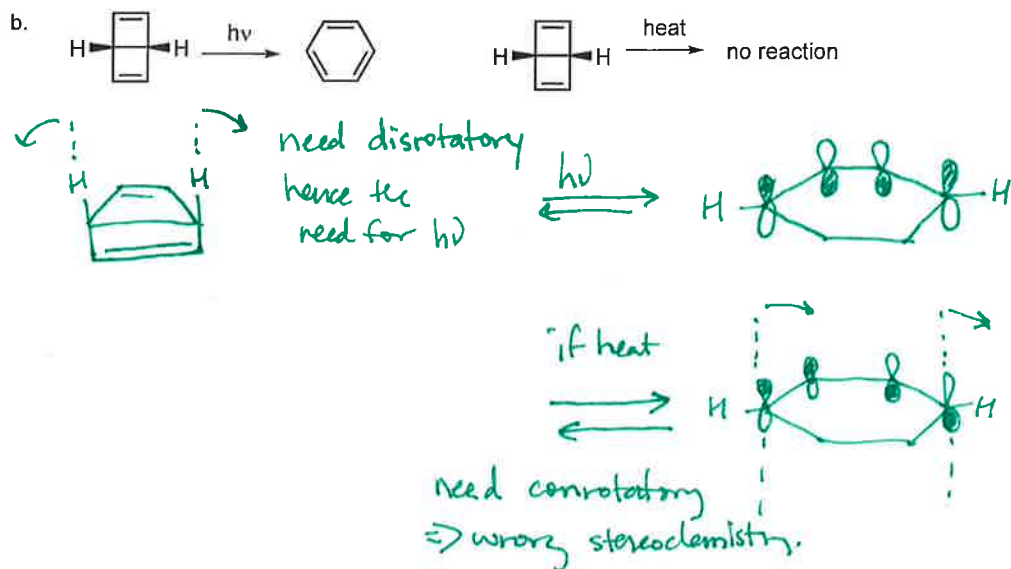 b.
H H hν
H H heat no reaction
H H
need disrotatory
hence the
need for hν
hν
H H
if heat
H H
need conrotatory
=> wrong stereochemistry.